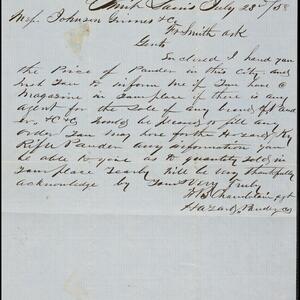 Saint Louis July 28th /58
Messrs Johnson Grimes & Co
Ft Smith Ark
Gents
Enclosed I hand you
the Price of Powder in this City and
wish you to inform me if you have a
Magazine in your place if there is any
agent for the Sale of any brand of Powd
er. would be pleased to fill any
order you may have for the Hazard Ky
Rifle Powder any information you
be able to give as to quantity sold in
your place yearly will be very thankfully
acknowledge by Yours Very Truly
Chamberlain agt
Hazard Powder Co